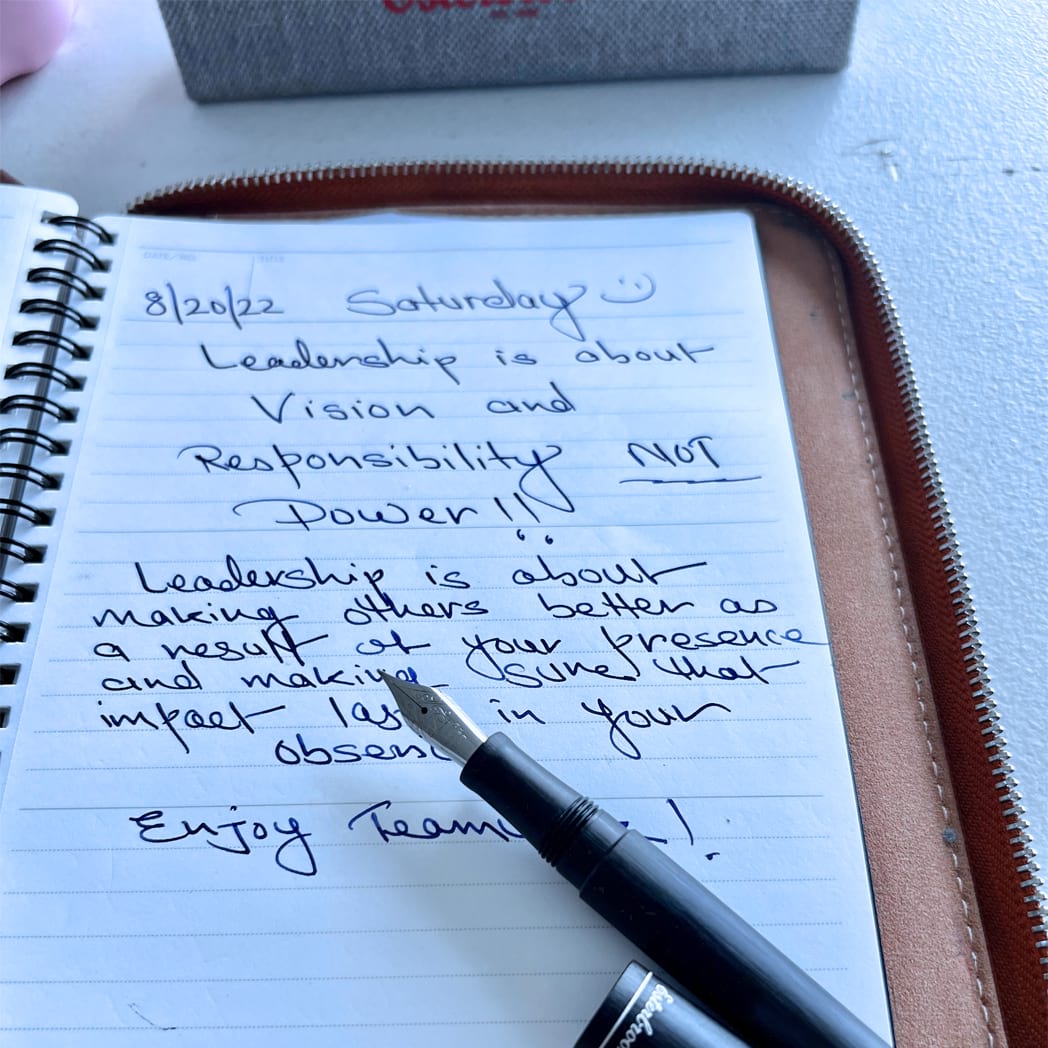 DATE/NO. TITLE
8/20/22 Saturday
Leadership is about
Vision and
Responsibility NOT
Power!!
Leadership is about
making others better as
a result of your presence
and making sure that
impact in your
Enjoy
Esterbrook